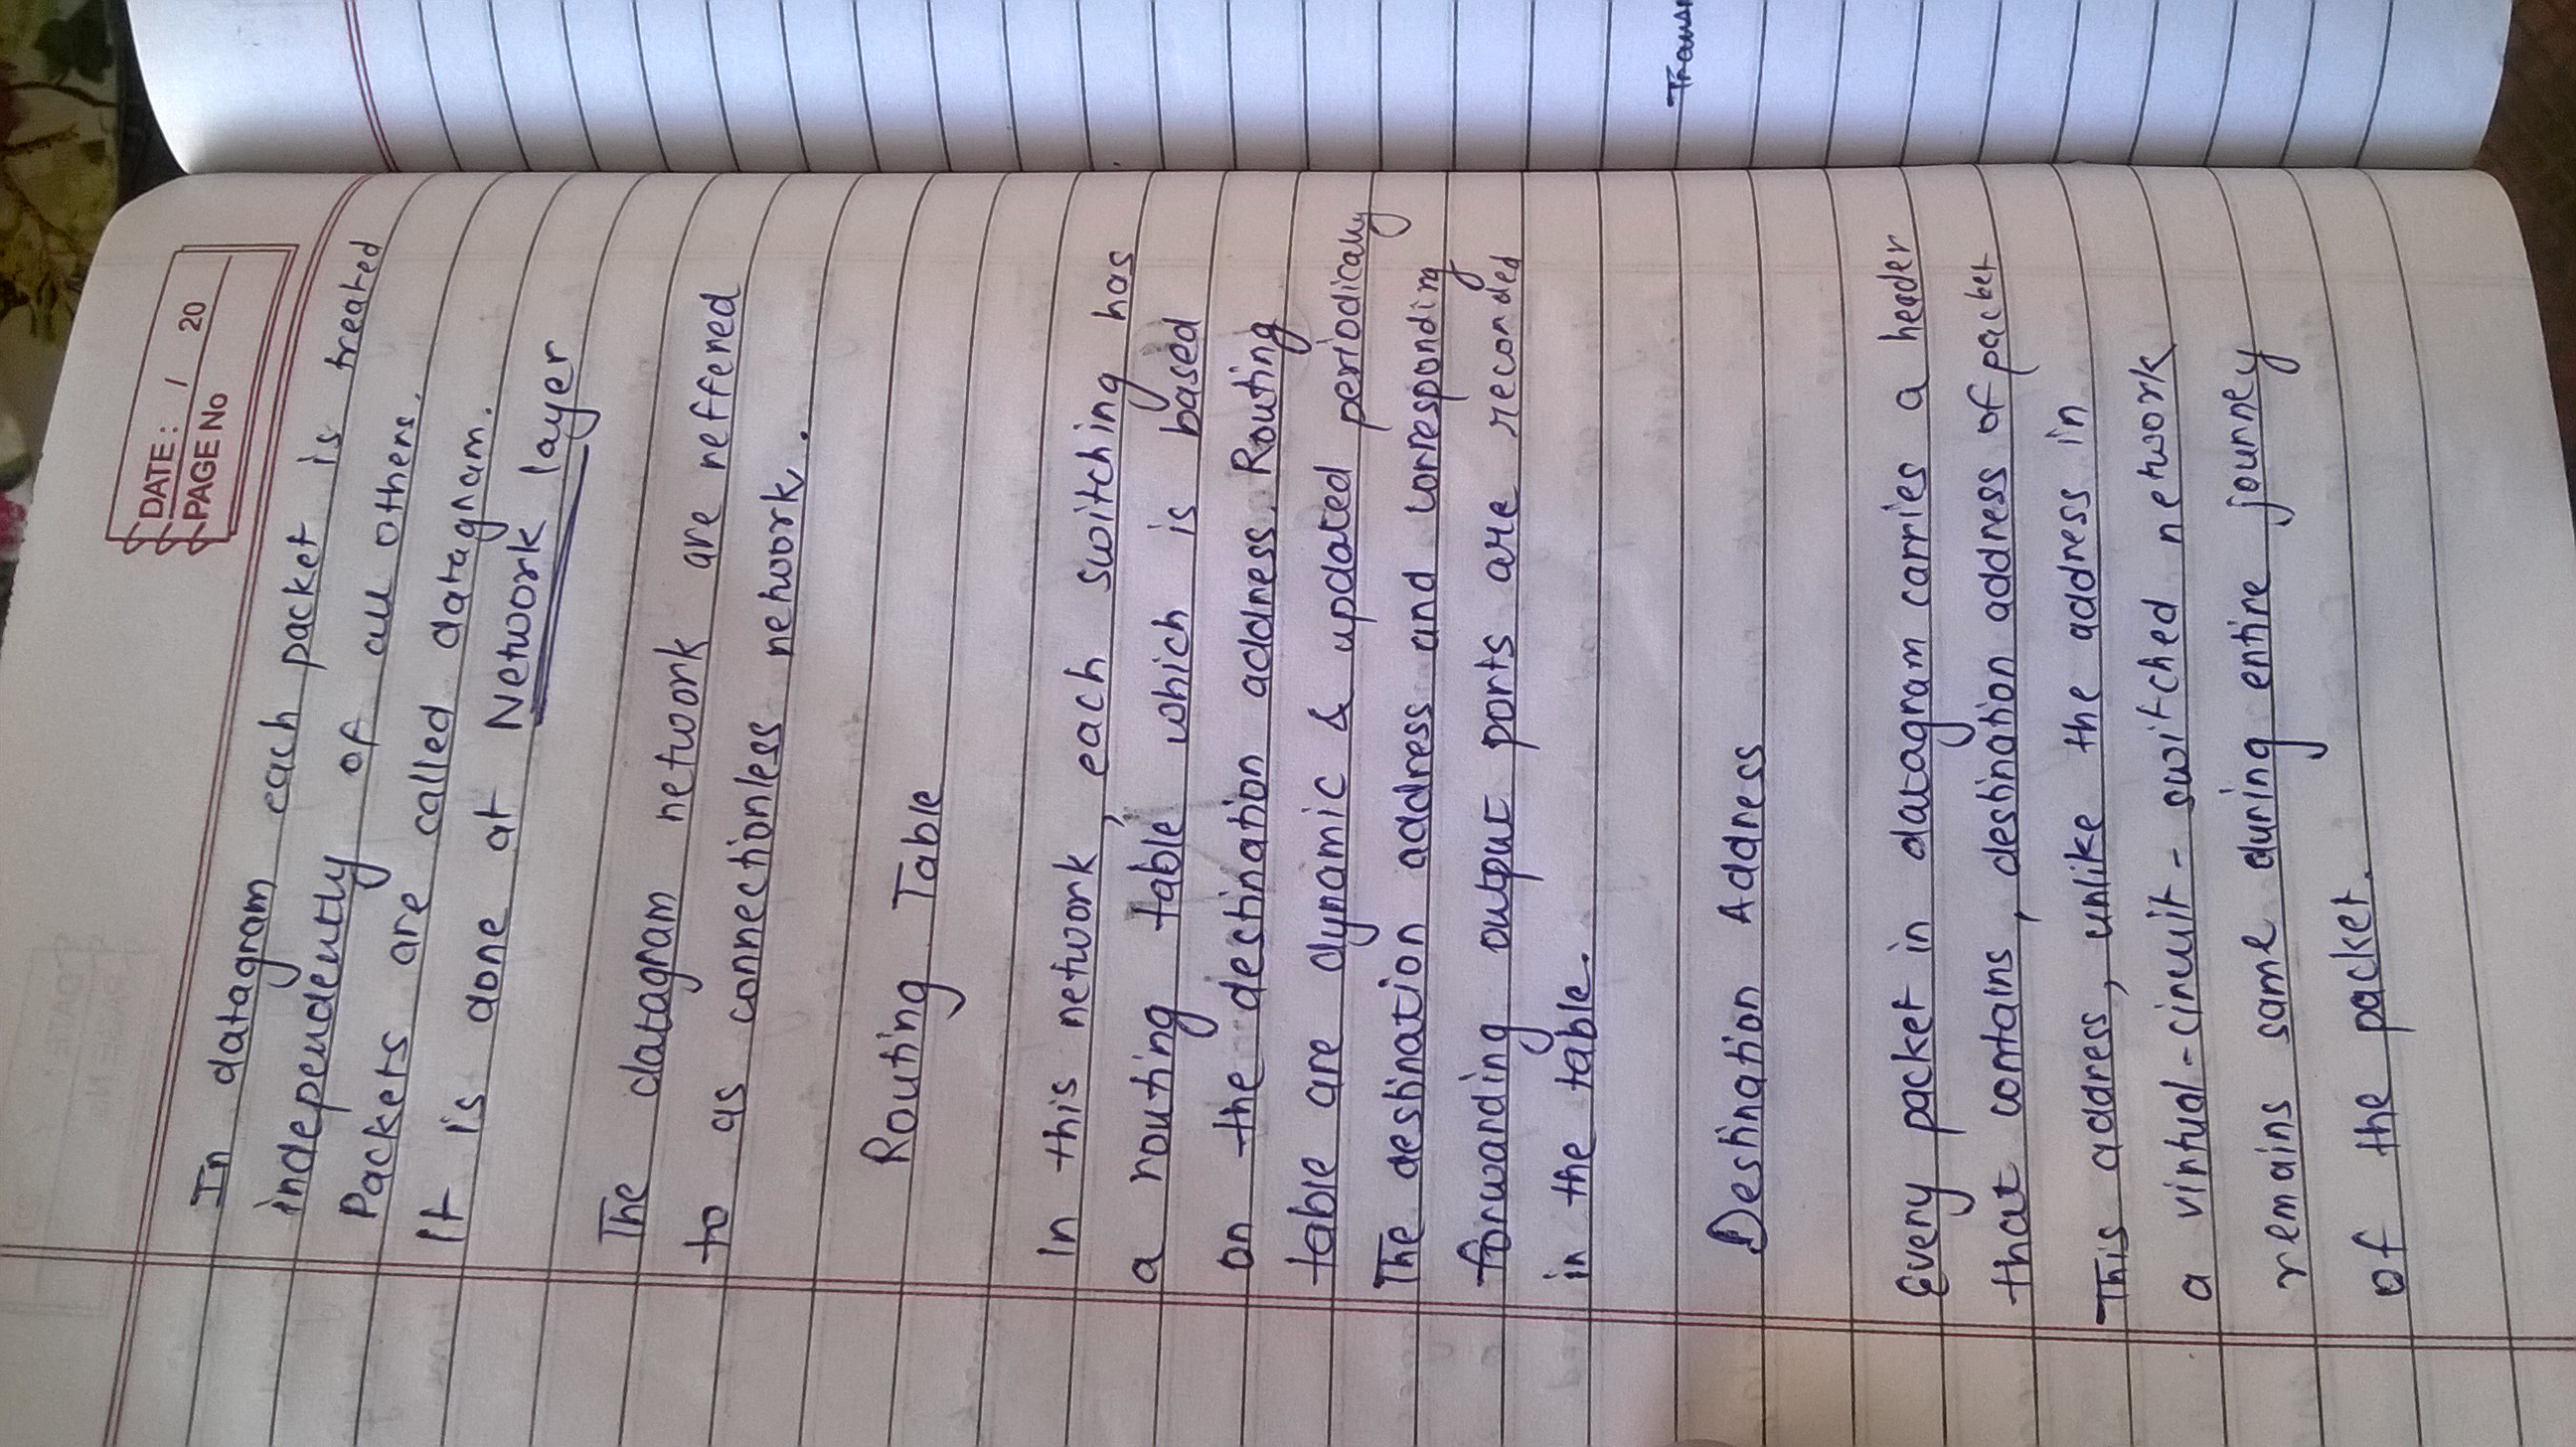 DATE: / 20
PAGE No
In datagram each packet is treated
independently of all others.
Packets are called datagram.
It is done at Network layer
The datagram network are reffered
to as connectionless network.
Routing Table
In this network, each switching has
a routing table which is based
on the destination address. Routing
table are dynamic & updated periodically
The destination address and corresponding
forwarding output ports are recorded
in the table.
Destination Address
Every packet in datagram carries a header
that contains, destination address of packet
This address, unlike the address in
a virtual-circuit-switched network
remains same during entire journey
of the packet.